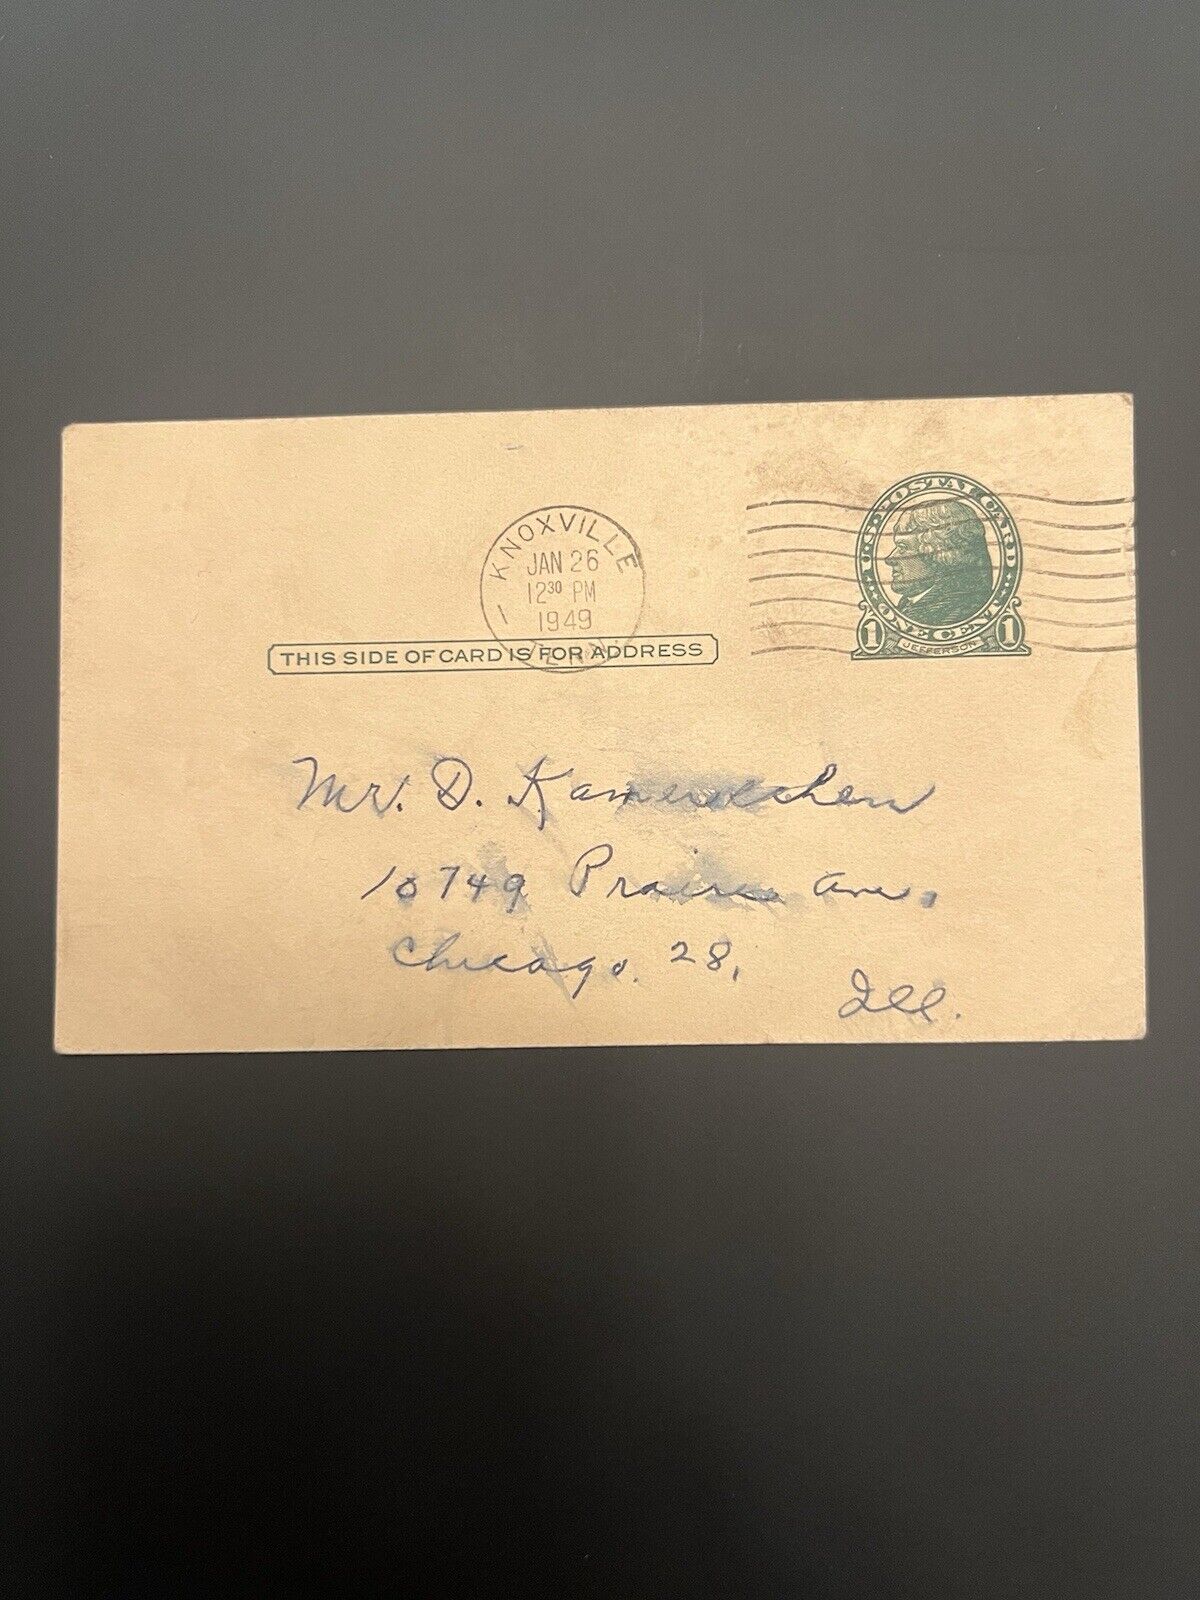 KNOXVILLE
JAN 26
12 30 PM
1949
TENN.
U.S. POSTAL CARD
ONE CENT
1 JEFFERSON 1
THIS SIDE OF CARD IS FOR ADDRESS
Mr. D.
10749 Prairie Ave.
Chicago. 28,
Ill.